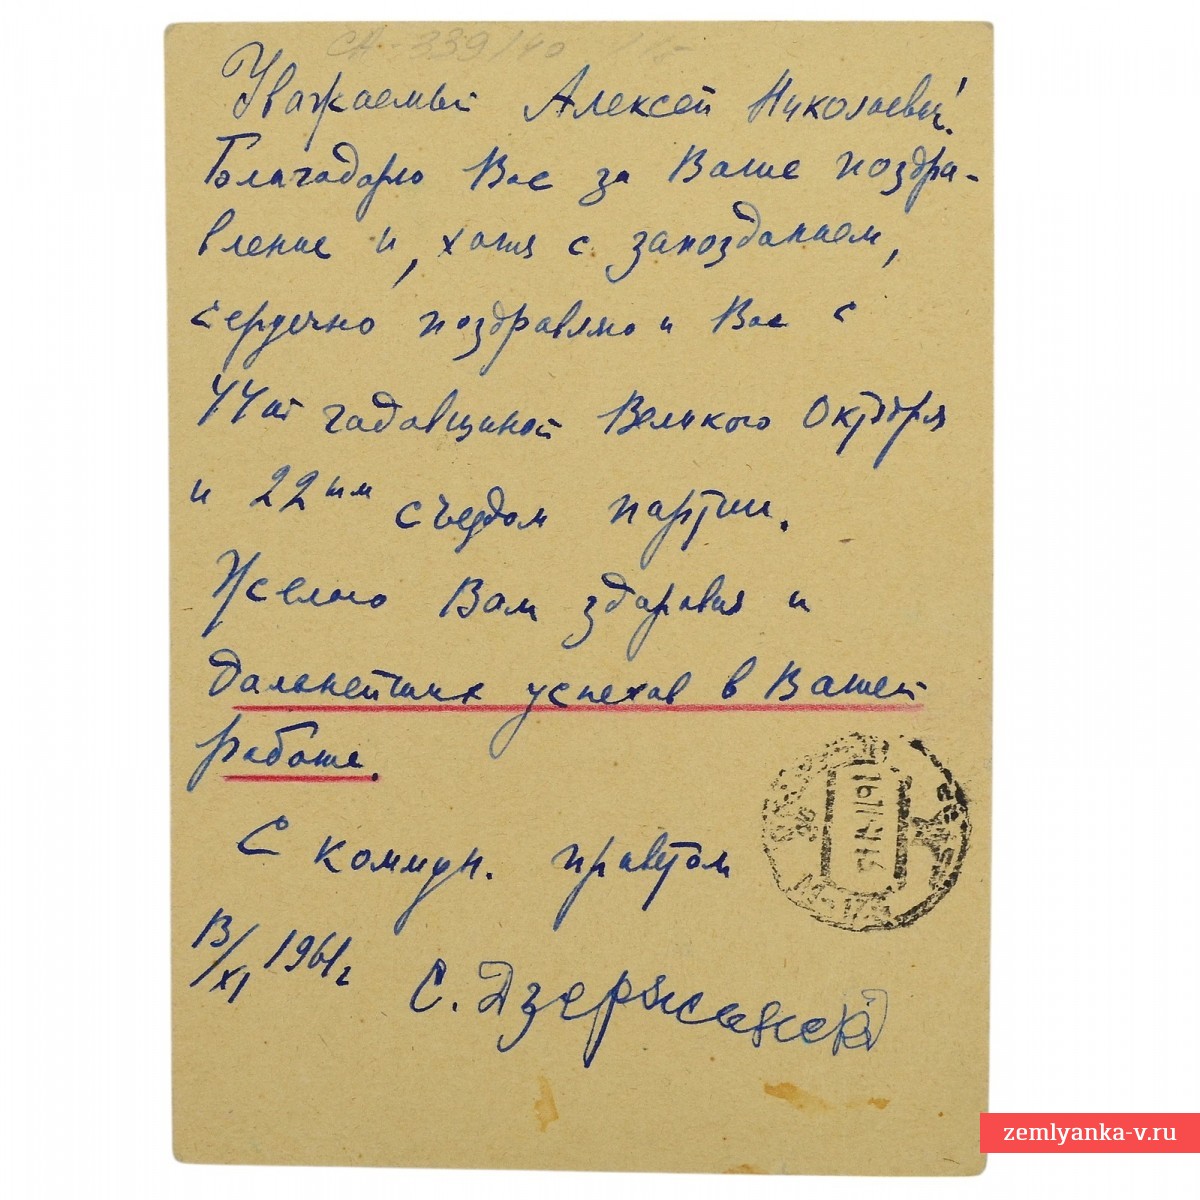 СА-339/40
Уважаемый Алексей Николаевич!
Благодарю Вас за Ваше поздра-
вление и, хотя с запозданием,
сердечно поздравляю и Вас с
44ой годовщиной Великого Октября
и 22ым съездом партии.
Желаю Вам здоровья и
дальнейших успехов в Вашей
работе.
С коммун. приветом
13/XI 1961г
С. Дзержинский
zemlyanka-v.ru